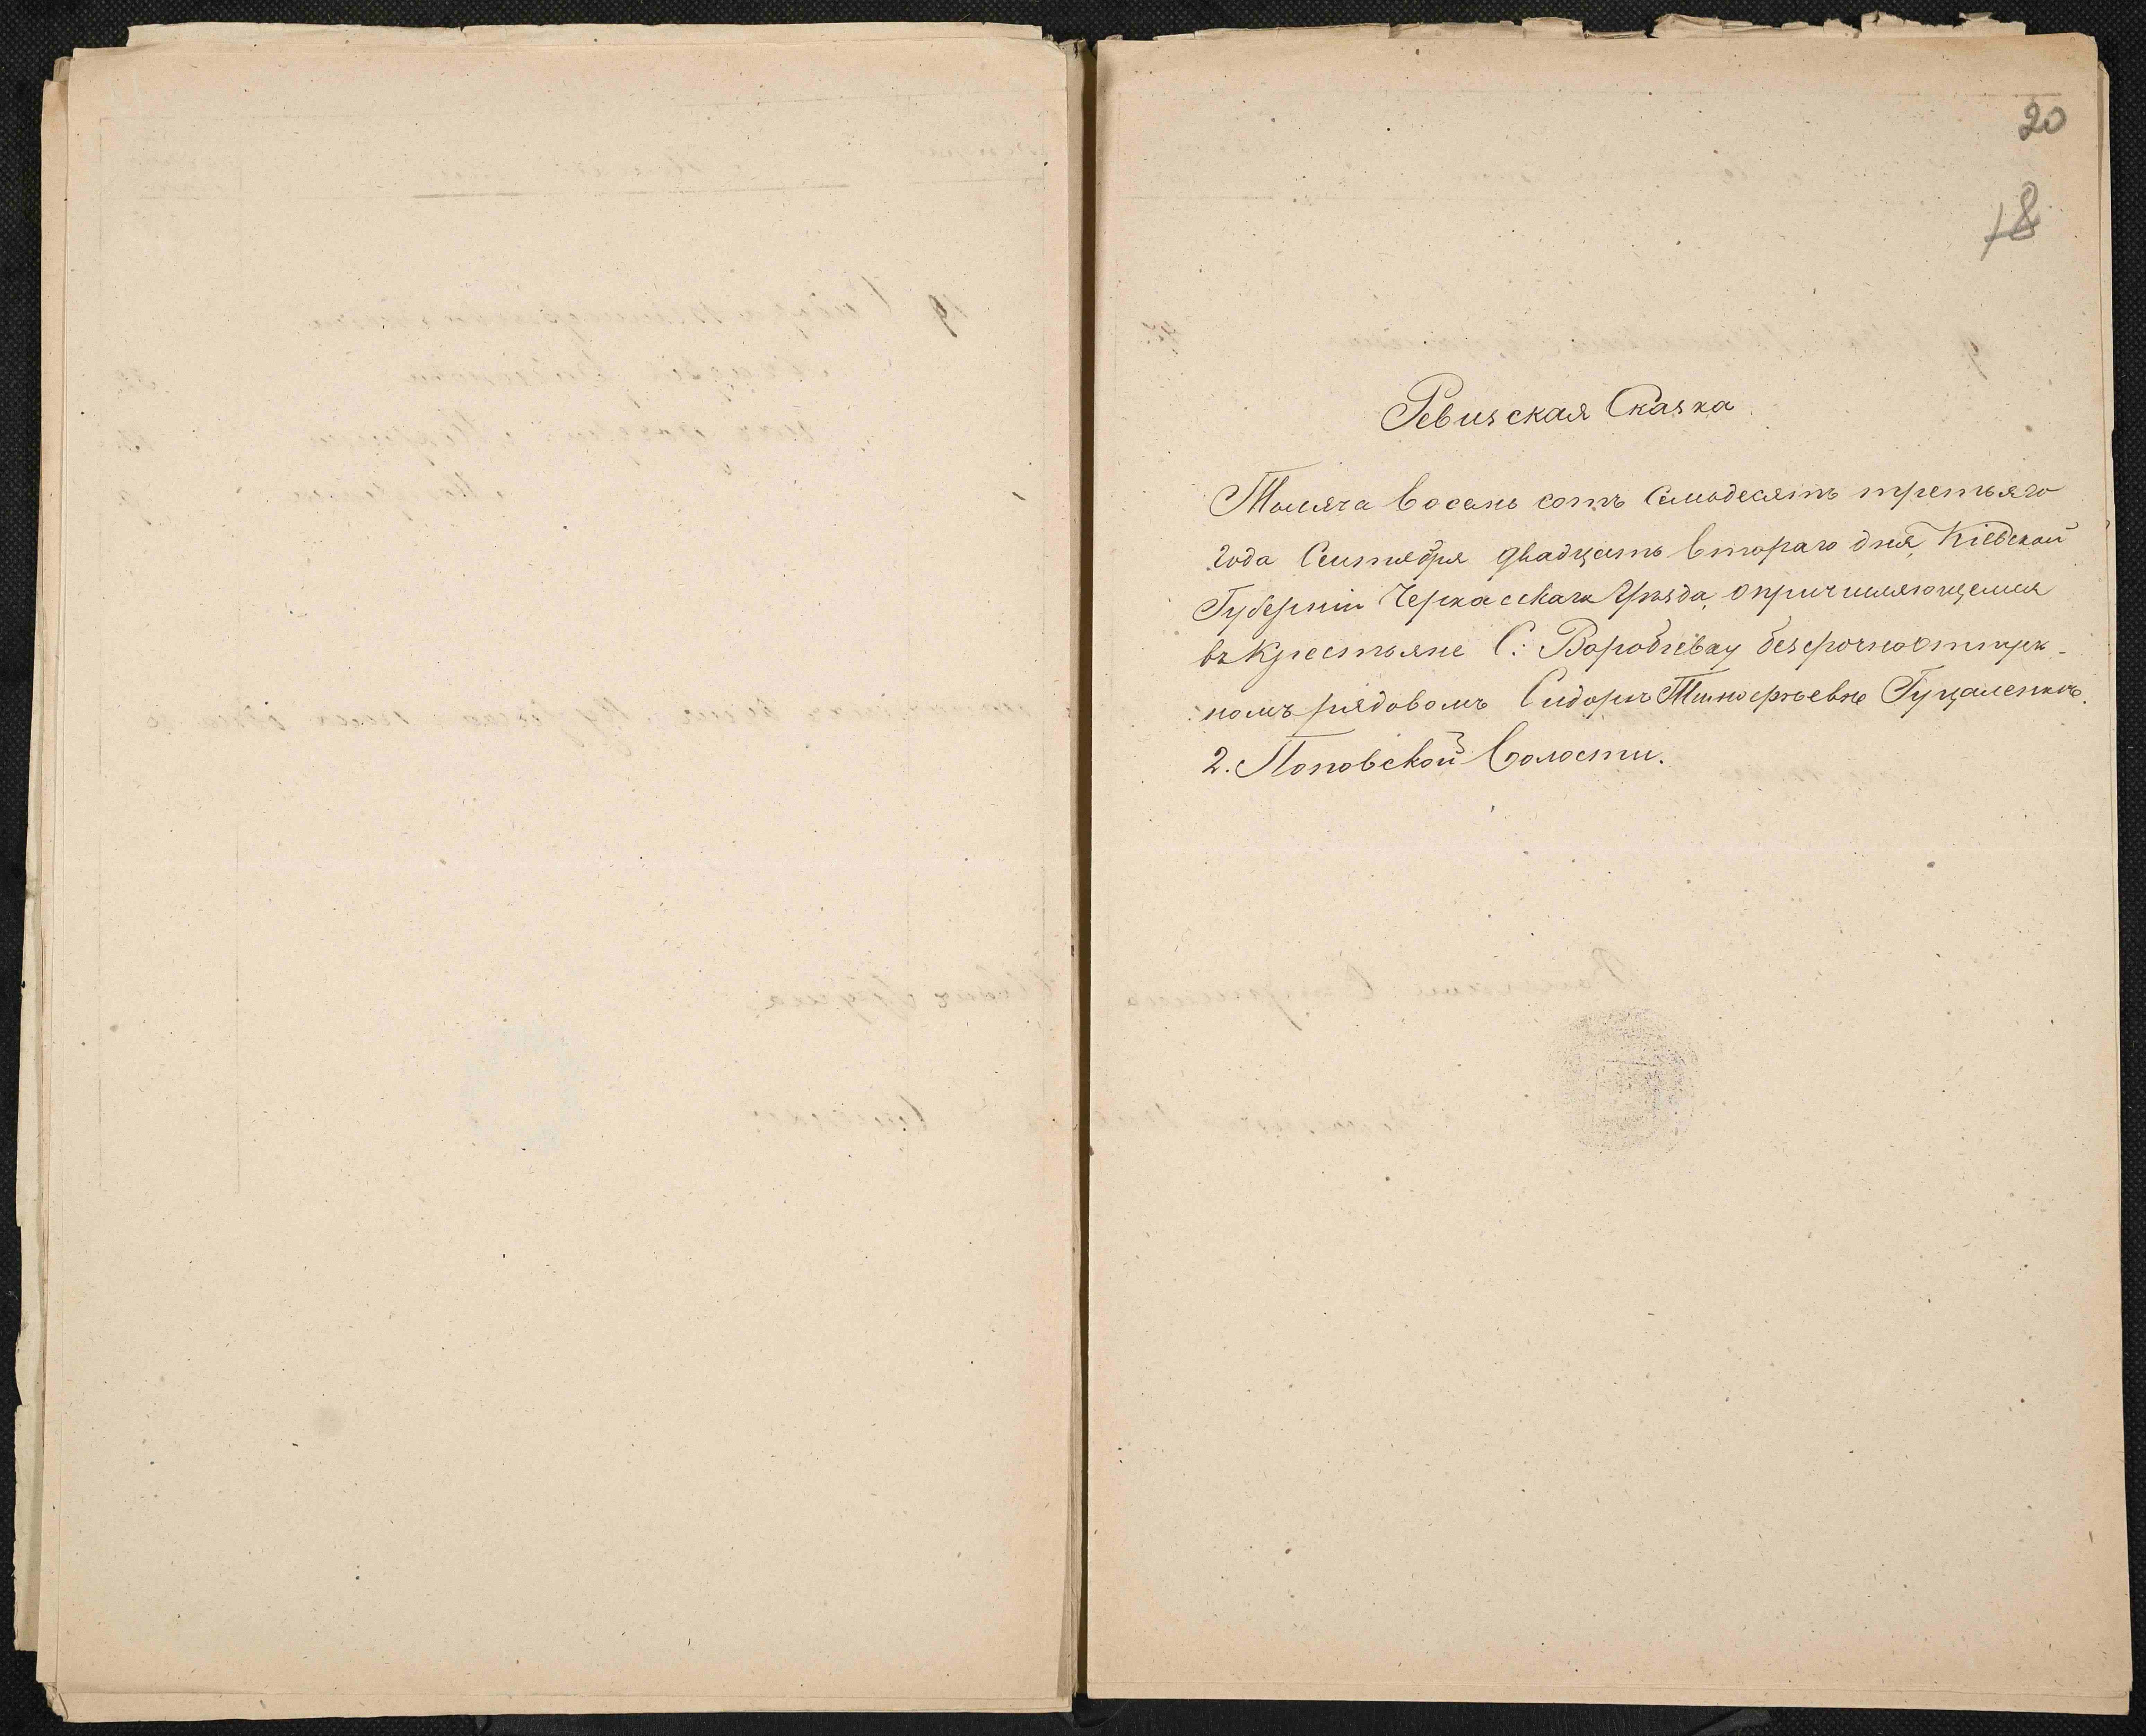 20
18
Ревизская Сказка
Тысяча Восемь сотъ Семьдесятъ третьяго
года Сентября двадцать втораго дня, Кіевской
Губерніи Черкасскаго Уѣзда, опричисляющемся
въ Крестьяне С: Воробіевку безсрочноотпуск-
номъ рядовомъ Сидорѣ Тимофѣевѣ Гуцаленкѣ
2. Поповской Волости.